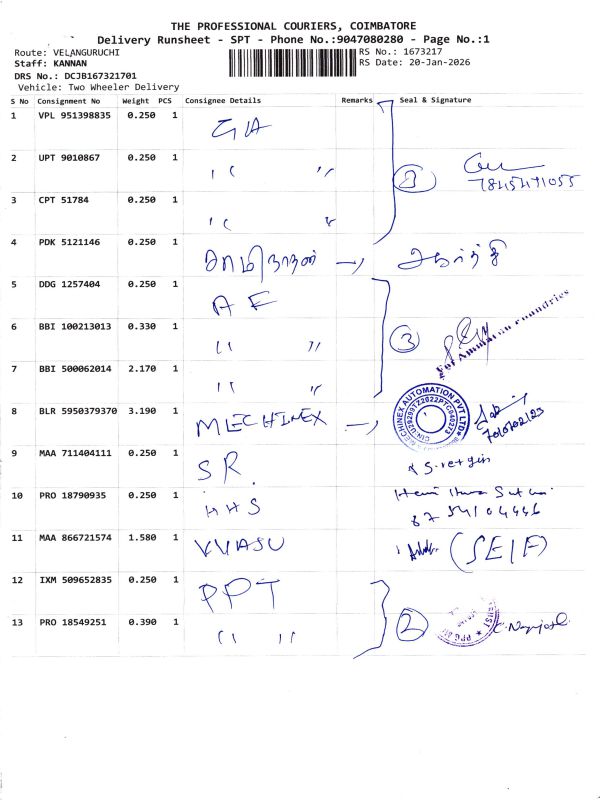 THE PROFESSIONAL COURIERS, COIMBATORE
Delivery Runsheet - SPT - Phone No.:9047080280 - Page No.:1
Route: VELANGURUCHI
RS No.: 1673217
Staff: KANNAN
RS Date: 20-Jan-2026
DRS No.: DCJB167321701
Vehicle: Two Wheeler Delivery
S No Consignment No Weight PCS Consignee Details Remarks Seal & Signature
1 VPL 951398835 0.250 1 GIA
2 UPT 9010867 0.250 1 " "
3 CPT 51784 0.250 1 " "
3
4 PDK 5121146 0.250 1
5 DDG 1257404 0.250 1 AE
6 BBI 100213013 0.330 1 " "
3
For Ammarun Foundries
7 BBI 500062014 2.170 1 " "
8 BLR 5950379370 3.190 1 MECHINEX
MECHINEX AUTOMATION PVT LTD
9 MAA 711404111 0.250 1 SR.
10 PRO 18790935 0.250 1 HHS
11 MAA 866721574 1.580 1 VVIASU (SEIF)
12 IXM 509652835 0.250 1 PPT
13 PRO 18549251 0.390 1 " "
2